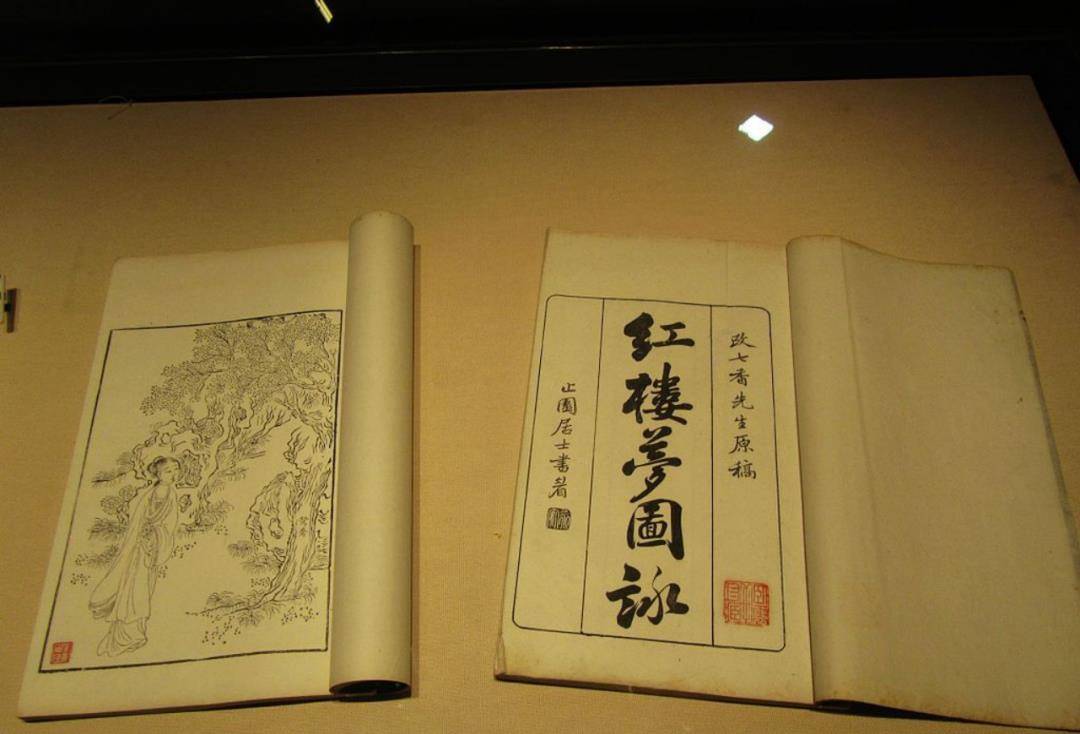 改七香先生原稿
红楼夢圖詠
止園居士書耑